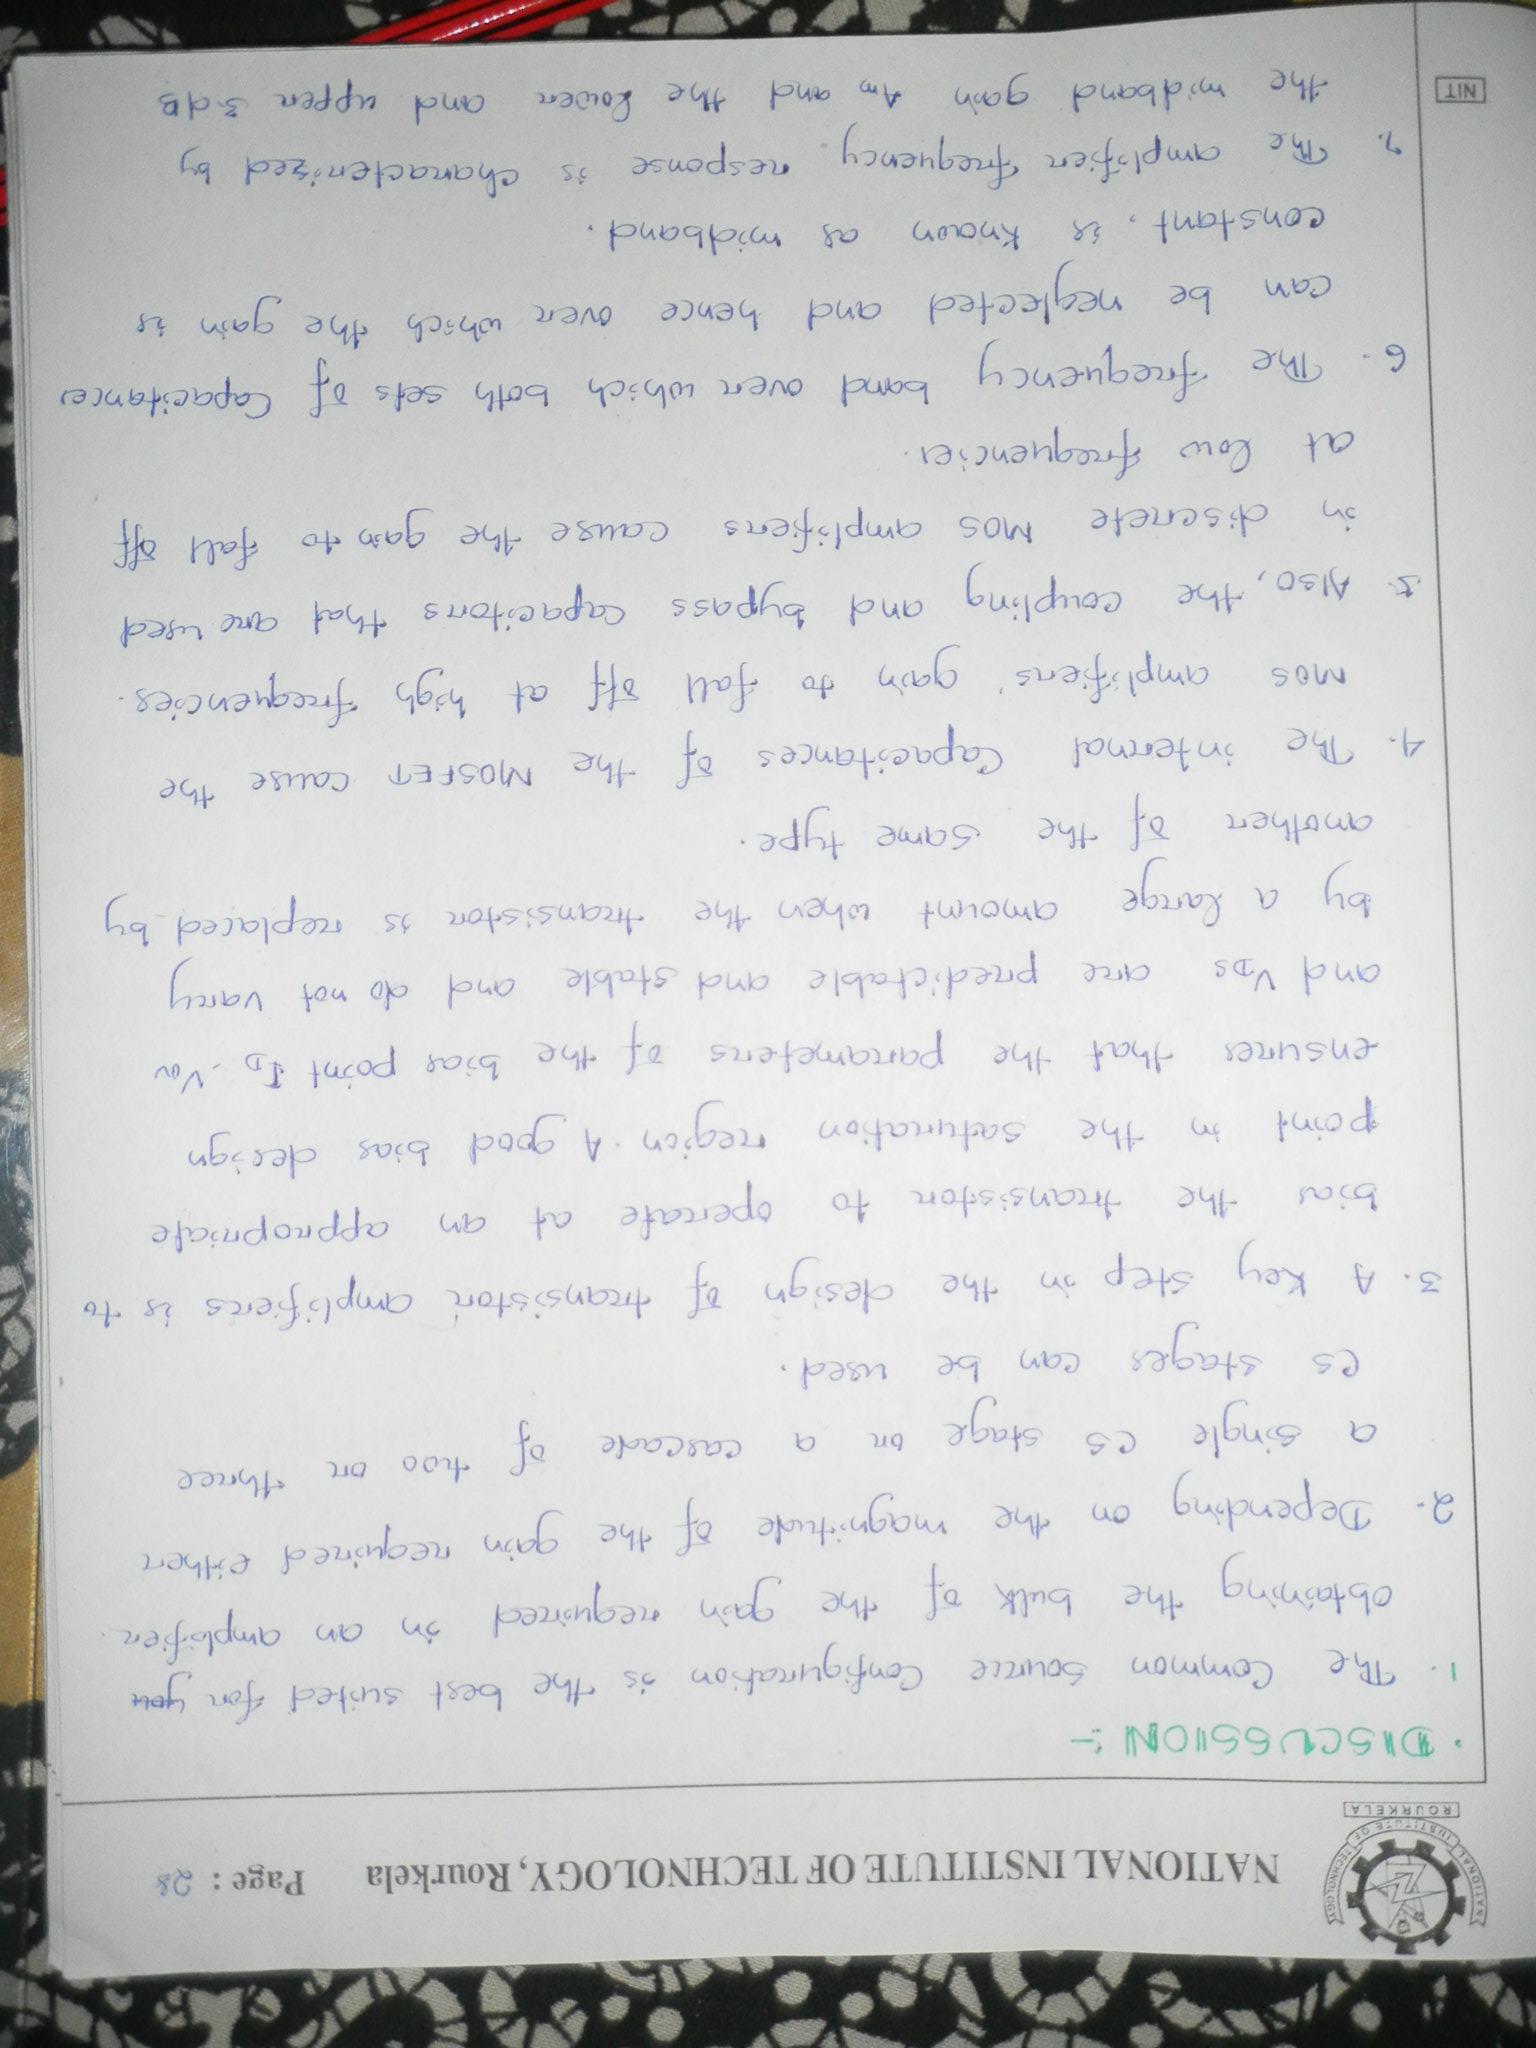 NATIONAL INSTITUTE OF TECHNOLOGY
ROURKELA
NATIONAL INSTITUTE OF TECHNOLOGY, Rourkela Page : 28
· DISCUSSION :-
1. The Common Source Configuration is the best suited for you
obtaining the bulk of the gain required in an amplifier.
2. Depending on the magnitude of the gain required either
a single CS stage or a cascade of two or three
CS stages can be used.
3. A key step in the design of transistor amplifiers is to
bias the transistor to operate at an appropriate
point in the saturation region. A good bias design
ensures that the parameters of the bias point ID, VOV
and VDS are predictable and stable and do not vary
by a large amount when the transistor is replaced by
another of the same type.
4. The internal Capacitances of the MOSFET cause the
MOS amplifiers' gain to fall off at high frequencies.
5. Also, the coupling and bypass capacitors that are used
in discrete MOS amplifiers cause the gain to fall off
at low frequencies.
6. The frequency band over which both sets of Capacitances
can be neglected and hence over which the gain is
constant, is known as midband.
7. The amplifier frequency response is characterized by
the midband gain Am and the lower and upper 3-dB
NIT